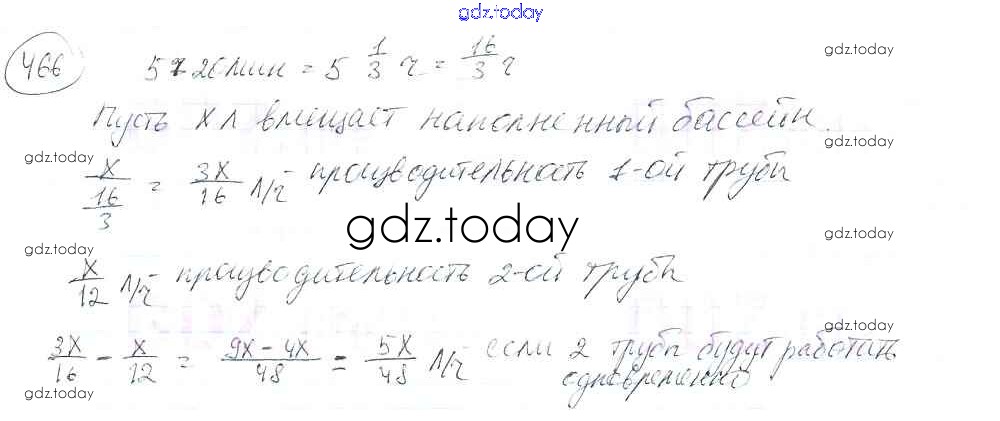 gdz.today
466 5 ч 20 мин = 5 1/3 ч = 16/3 ч
gdz.today
Пусть x л вмещает наполненный бассейн.
gdz.today
gdz.today
x/(16/3) = 3x/16 л/ч производительность 1-ой трубы
gdz.today
gdz.today
gdz.today
x/12 л/ч производительность 2-ой трубы
gdz.today
gdz.today
3x/16 - x/12 = 9x-4x/48 = 5x/48 л/ч если 2 трубы будут работать
одновременно
gdz.today
gdz.today